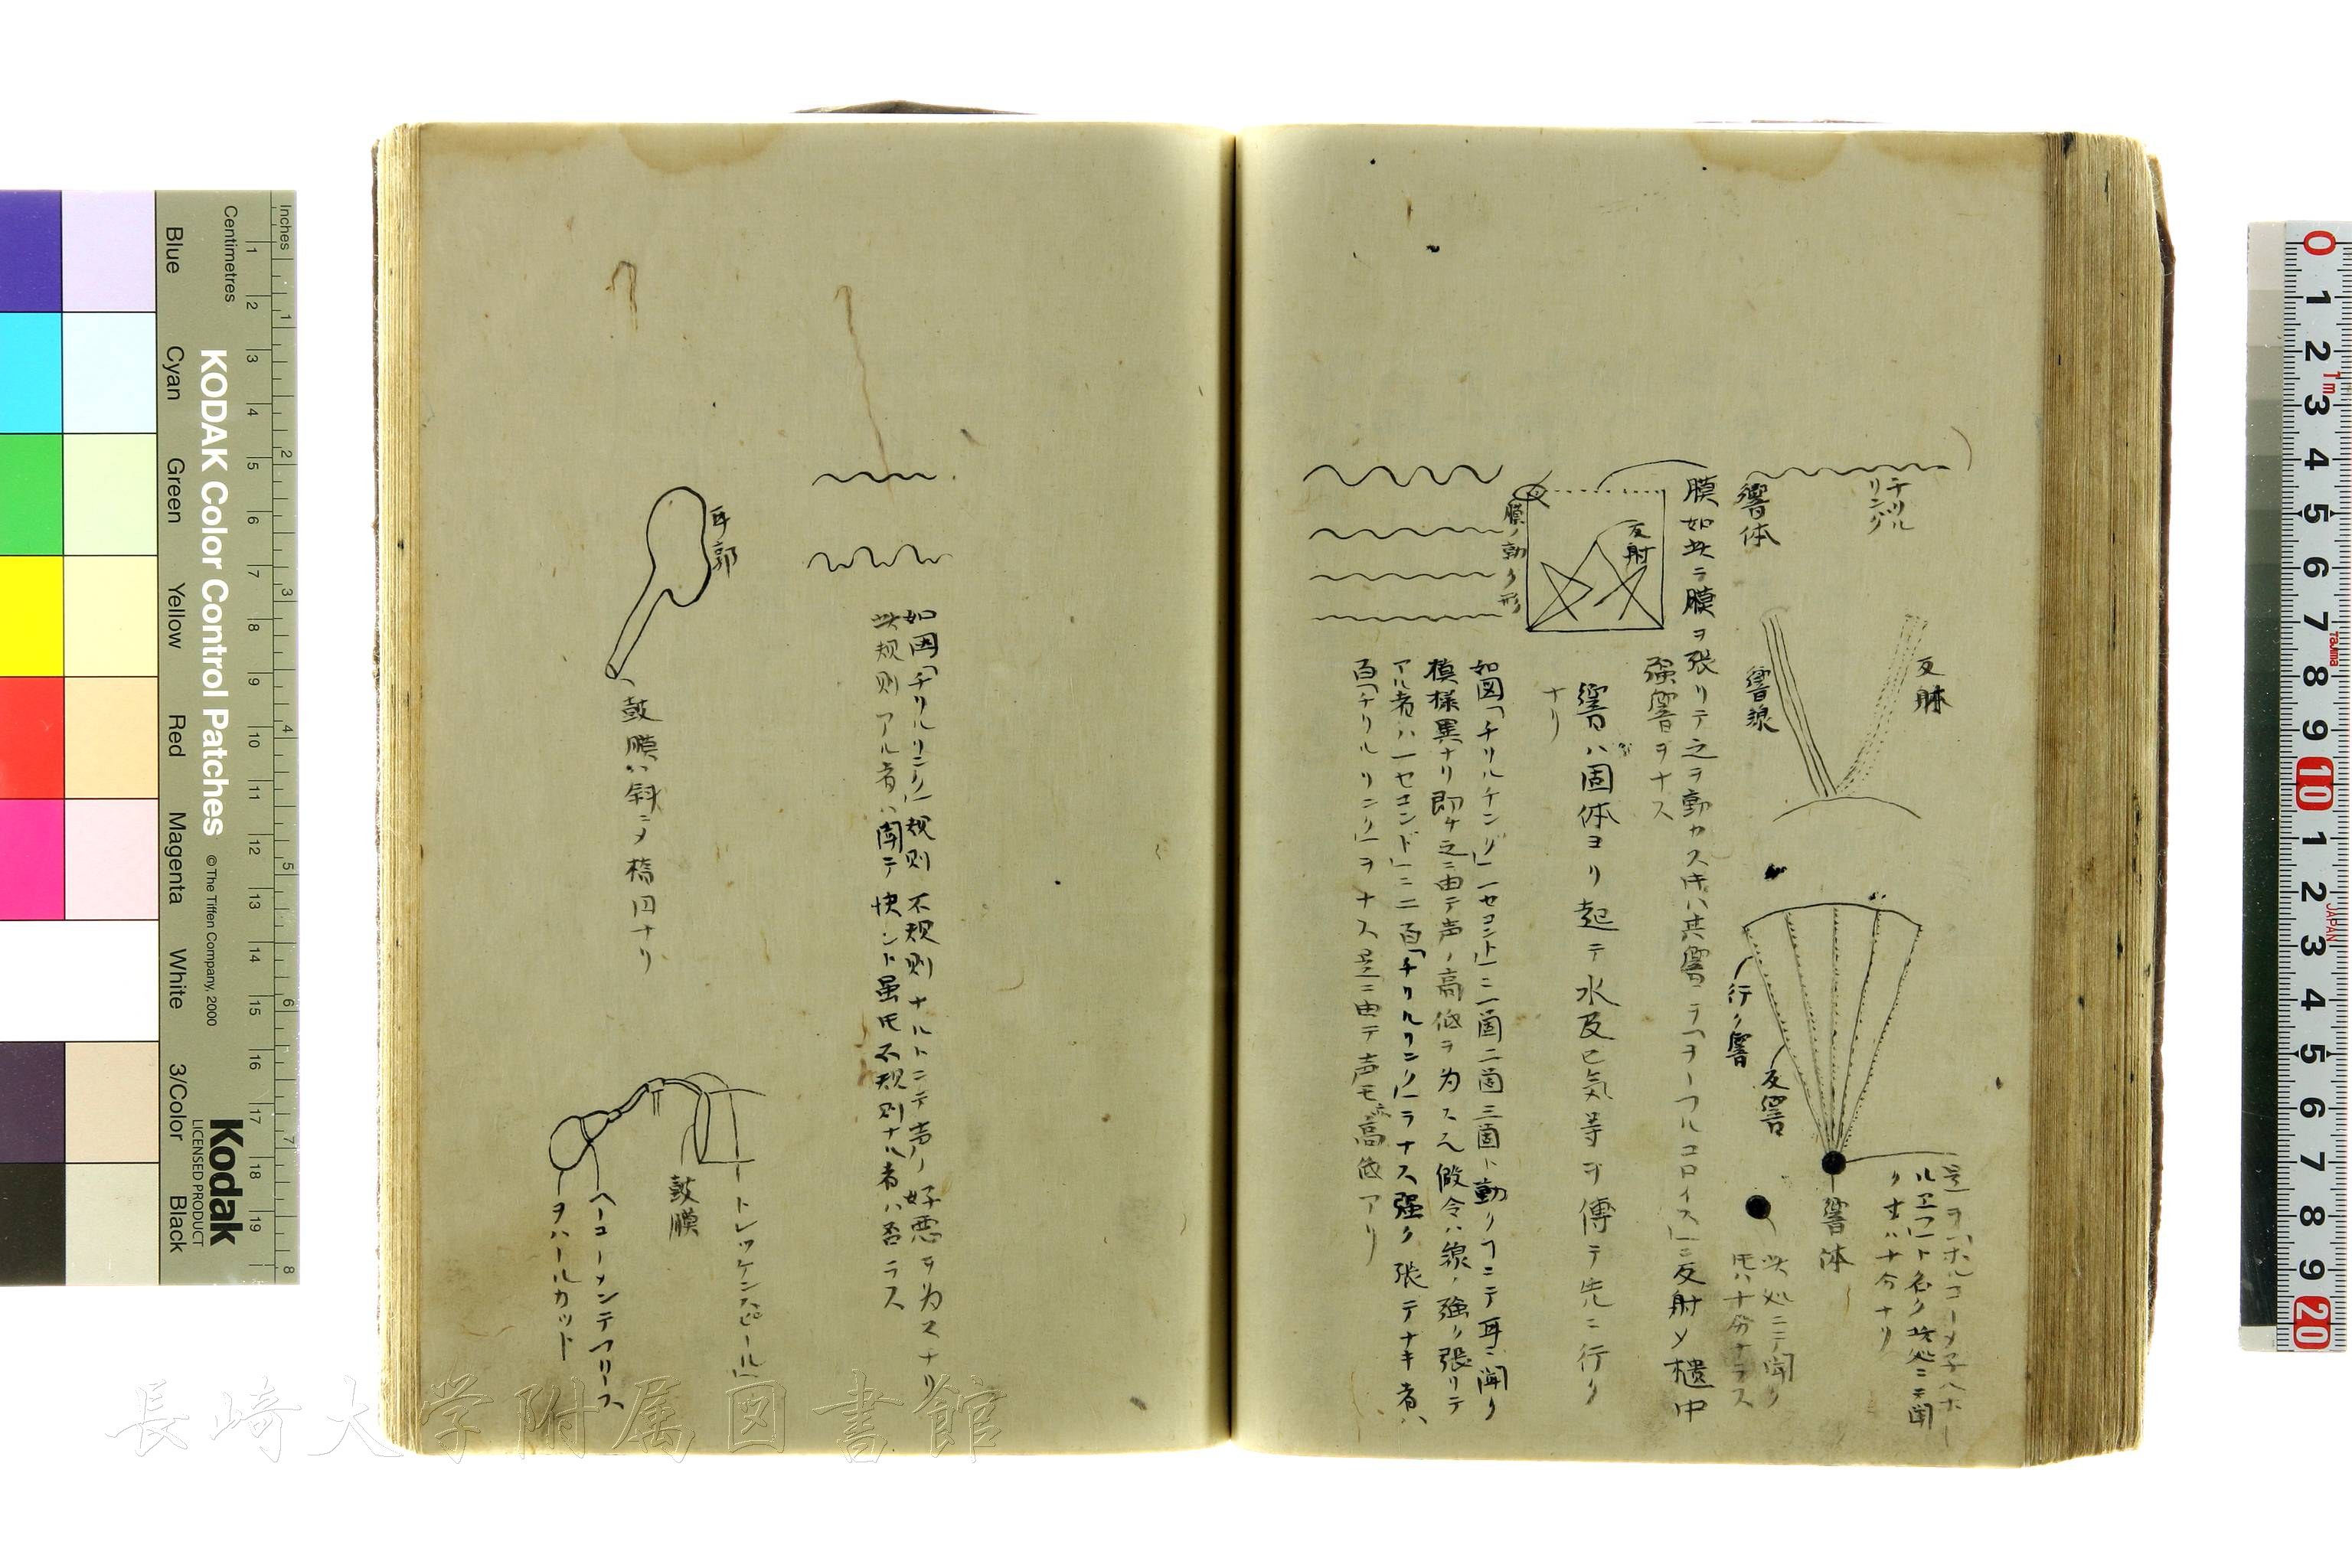 チリル
リング
響体
反射
響線
行ク響
反響
是ヲ「ホルコーメ子ヘホー
ルエフ」ト名ク此処ニテ聞
クオハ十分ナリ
響体
此処ニテ聞ク
モハ十分ナラス
膜如此ヲ膜ヲ張リテ之ヲ動カス片ハ其響ニテ「ヲーフルコロイス」ニ反射メ樻中
強響ヲナス
反射
膜ノ動ク形
響ハ固体ヨリ起テ水及已気等ヲ傳テ先ニ行ク
ナリ
如図「チリルケング」一セコント」ニ一箇二箇三箇ト動クフニテ耳ニ聞ク
模様異ナリ即チ之ニ由テ声ノ高低ヲ為スル假令ハ線ノ強ク張リテ
アル者ハ一セコンド」ニ二百「チリルリンク」ヲナス強ク張テナキ者ハ
百「チリルリンク」ヲナス是ニ由テ声モ亦高低アリ
如図「チリルリンク」規則不規則ナルトニテ声ノ好悪ヲ為スナリ
此規則アル者ハ聞テ快シト虽モ不規則ナル者ハ否ラス
耳郭
鼓膜ハ斜ニメ橢円ナリ
トレッケンスピール」
鼓膜
ヘーコーメンテフリース
ヲハールカット
長崎大学附属図書館
KODAK Color Control Patches
© The Tiffen Company, 2000
Kodak
LICENSED PRODUCT
Inches
Centimetres
Blue
Cyan
Green
Yellow
Red
Magenta
White
3/Color
Black
1 2 3 4 5 6 7 8 9 10 11 12 13 14 15 16 17 18 19
1 2 3 4 5 6 7 8
0 1 2 3 4 5 6 7 8 9 10 1 2 3 4 5 6 7 8 9 20
1m
Tajima
JAPAN